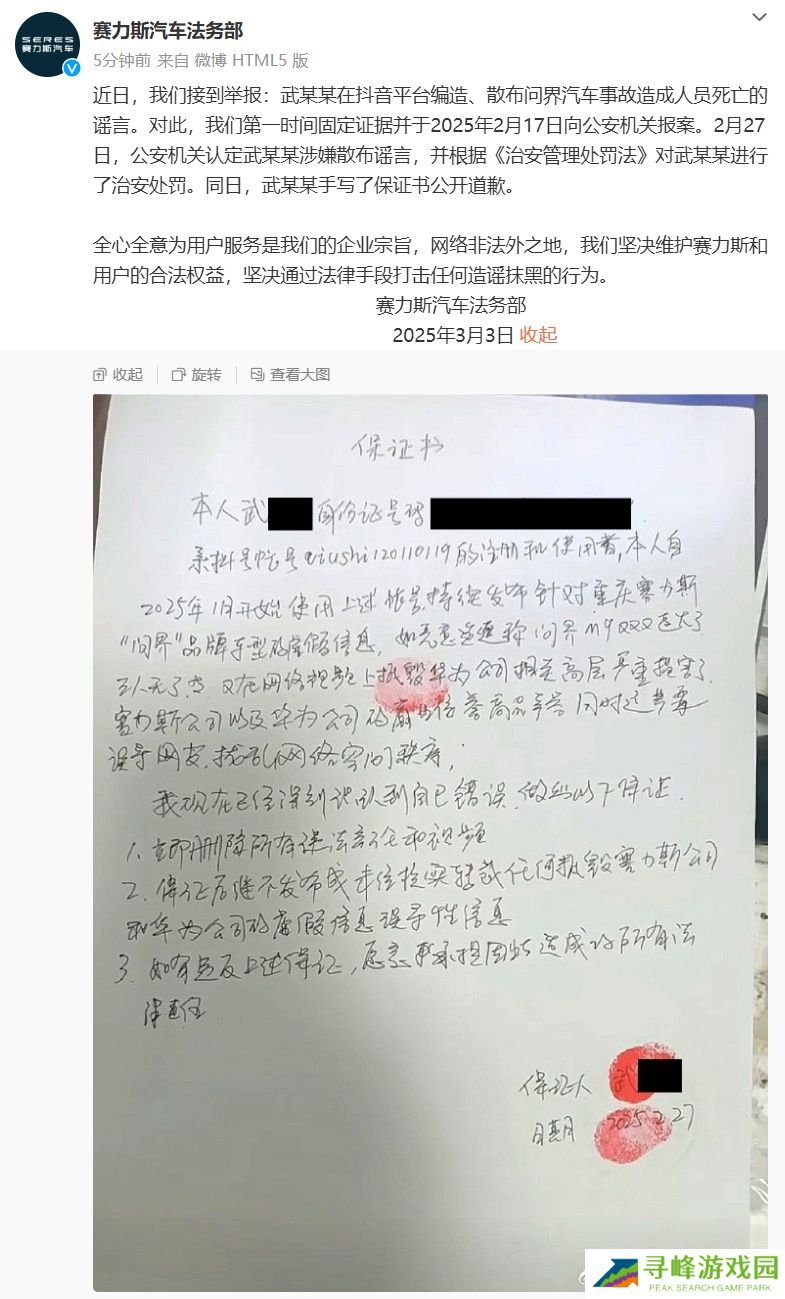 SERES
赛力斯汽车
赛力斯汽车法务部
5分钟前 来自 微博 HTML5 版
近日，我们接到举报：武某某在抖音平台编造、散布问界汽车事故造成人员死亡的
谣言。对此，我们第一时间固定证据并于2025年2月17日向公安机关报案。2月27
日，公安机关认定武某某涉嫌散布谣言，并根据《治安管理处罚法》对武某某进行
了治安处罚。同日，武某某手写了保证书公开道歉。
全心全意为用户服务是我们的企业宗旨，网络非法外之地，我们坚决维护赛力斯和
用户的合法权益，坚决通过法律手段打击任何造谣抹黑的行为。
赛力斯汽车法务部
2025年3月3日 收起
收起 旋转 查看大图
保证书
本人武 身份证号码
系抖音帐号qiushi120110119的注册和使用者，本人自
2025年1月开始使用上述帐号持续发布针对重庆赛力斯
"问界"品牌车型的虚假信息，如恶意造谣称问界M9
三人死了 又在网络视频上抵毁华为公司相关高层严重损害了
赛力斯公司以及华为公司的商业信誉商品声誉同时还
误导网友，扰乱网络空间秩序；
我现在已经深刻认识到自己错误，做出以下保证．
1．立即删除所有违法言论和视频
2．保证后继不发布或未经核实转载任何抵毁赛力斯公司
和华为公司的虚假信息误导性信息
3．如有违反上述保证，愿意承担因此造成的所有法
律责任
保证人 武
日期 2025.2.27
寻峰游戏园
PEAK SEARCH GAME PARK